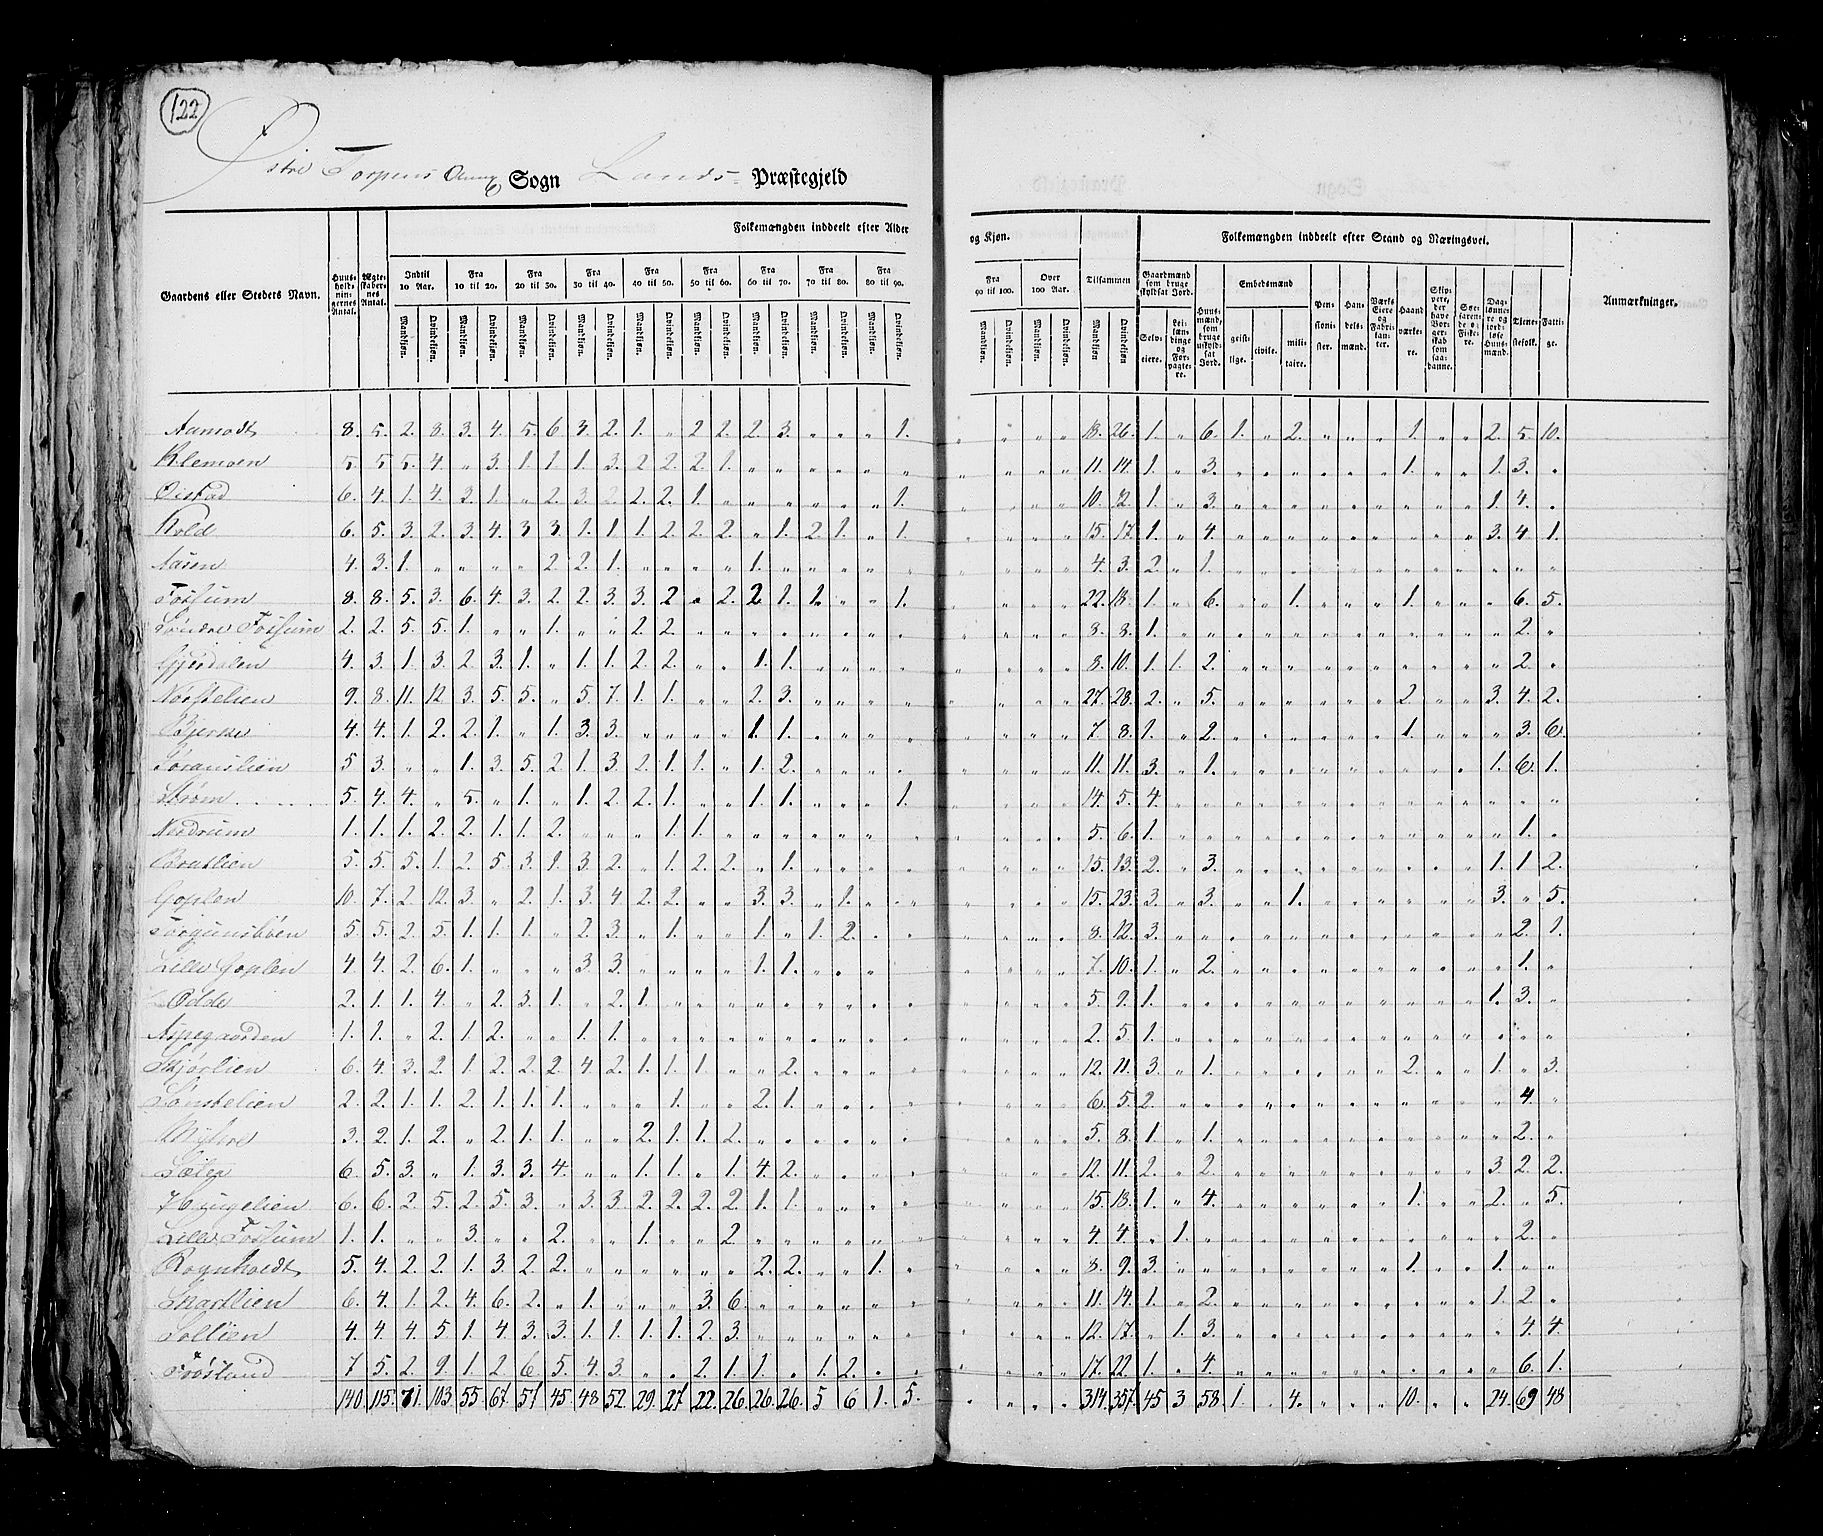 122
Østre Torpens Annex Sogn Lands Præstegjeld
Gaardens eller Steders Navn. Huusholdningernes Antal. Ægteskabernes Antal. Folkemængden inddeelt efter Alder og Kjøn. Tilsammen Folkemængden inddeelt efter Stand og Næringsvei. Anmærkninger.
Indtil 10 Aar. Fra 10 til 20. Fra 20 til 30. Fra 30 til 40. Fra 40 til 50. Fra 50 til 60. Fra 60 til 70. Fra 70 til 80. Fra 80 til 90. Fra 90 til 100. Over 100 Aar.
Gaardmænd som bruge skyldsat Jord. Huusmænd, som bruge uskyldsat Jord. Embedsmænd Pensionister. Handelsmænd. Værks Eiere og Fabrikanter. Haandværkere. Skippere, der have Borgerskab som saadanne. Søefarende og Fiskere. Daglønnere og jordløse Huusmænd. Tjenestefolk. Fattige.
Selveiere. Leilændinge og Forpagtere. geistlige. civile. militaire.
Mandkjøn. Qvindekjøn.
Aamodt 8. 5. 2. 8. 3. 4. 5. 6 3. 2. 1. " 2 2. 2. 3. " " " 1. " " " " 18. 26. 1. " 6. 1. " 2. " " " 1. " " 2. 5. 10.
Klemoen 5. 5 5. 4. " 3. 1. 1. 1. 3. 2 2. 2. 1. " " " " " " " " " " 11. 14. 1. " 3. " " " " " " 1. " " 1. 3. "
Oistad 6. 4. 1. 4. 3. 1. " 2. 3. 2. 2. 1. " " " " " " 1. " " " " 10. 12. 1. " 3. " " " " " " " " " 1. 4. "
Kold 6. 5. 3. 2. 3. 4. 3 3. 1. 1. 1. 2. 2. 2. " 1. 2. 1. " 1. " " " " 15. 17. 1. " 4. " " " " " " " " " 3. 4. 1.
Aasen 4. 3. 1. " " " " 2. 2. 1. " " " " 1. " " " " " " " " " 4. 3. 2. " 1. " " " " " " " " " " " "
Fossum 8. 8. 5. 3. 6. 4. 3. 2. 2. 3. 3. 2 " 2. 2. 1. 1. " " 1. " " " " 22. 18. 1. " 6. " " 1. " " " 1. " " " 6. 5.
Søndre Fossum 2. 2. 5. 5. 1. " " 1. " " 2. 2. " " " " " " " " " " " " 8. 8. 1. " " " " " " " " " " " " 2. "
Gjerdalen 4. 3. 1. 3. 2. 3. 1. " 1. 1. 2. 2. " " 1. 1. " " " " " " " " 8. 10. 1. 1. 2. " " " " " " " " " " 2. "
Nørstelien 9. 8. 11. 12. 3. 5. 5. " 5. 7. 1. 1. " " 2. 3. " " " " " " " " 27. 28. 2. " 5. " " " " " " 2. " " 3. 4. 2.
Bjerke 4. 4. 1. 2. 2. 1. " 1. 3. 3. " " " " 1. 1. " " " " " " " " 7. 8. 1. " 2. " " " " " " 1. " " " 3. 6.
5 3. " " 1. 3. 5. 2. 1. 3. 2. 1. 1. " 1. 2. " " " " " " " " 11. 11. 3. " 1. " " " " " " " " " 1. 6. 1.
Strøm 5. 4. 4. " 5. " 1. " 1. 2. 2. 1. " " 1. 1. " " " 1. " " " " 14. 5. 4. " " " " " " " " " " " " " "
Nerdrum 1. 1. 1. 2. 2. 1. 1. 2. " " " 1. 1. " " " " " " " " " " " 5. 6. 1. " " " " " " " " " " " " 1. "
Bratlien 5. 5. 5. 1. 2. 5. 3. 1. 3. 2. " 1. 2. 2. " 1. " " " " " " " " 15. 13. 2. " 3. " " " " " " " " " 1. 1. 2.
Goplen 10. 7. 2. 12. 3. " 2. 1. 3. 4. 2. 2. " " 3. 3. " 1. " " " " " " 15. 23. 3. " 3. " " 1. " " " " " " 3. " 5.
5. 5. 2. 5. 1. 1. 1. " 2. 3. " 1. " " 1. " 1. 2. " " " " " " 8. 12. 3. " " " " " " " " " " " " 2. 1.
Lille Goplen 4. 4. 2. 6. 1. " " " 3. 3. " " " " 1. 1. " " " " " " " " 7. 10. 1. " 2. " " " " " " " " " " 1. "
Odde 2. 1. 1. 4. " 2. 3. 1. " 2. 1. " " " " " " " " " " " " " 5. 9. 1. " " " " " " " " " " " 1. 3. "
Aspegaarden 1. 1. " 2. 1. 2. " " 1. 1. " " " " " " " " " " " " " " 2. 5 1. " " " " " " " " " " " " " "
6. 4. 3. 2. 1. 2. 2. 2. 4. 2. 1. 1. 1. " " 2. " " " " " " " " 12. 11. 3. " 1. " " " " " " 2. " " 1. " 3.
Sønstelien 2. 2. 1. 1. 2. 1. 1. 1. " " " 1. " " 2. 1. " " " " " " " " 6. 5. 2. " " " " " " " " " " " " 4. "
3. 2. 1. 2. " 2. 1. 1. " " 2. 1. 1. 2. " " " " " " " " " " 5. 8. 1. " 1. " " " " " " " " " " 2. "
6. 5. 3. " 1. 3. 3. 4. " " 1. 1. " 1. 4. 2. " " " " " " " " 12. 11. 2. " 2. " " " " " " " " " 3. 2. 2.
Haugelien 6. 6. 2. 5. 2. 5. 3. " 3. 3. 2. 2. 2. 2. 1. 1. " " " " " " " " 15. 18. 1. " 4. " " " " " " 1. " " 2. " 5.
Lille Fossum 1. 1. " " 3. " " 2. " " 1. " " 2. " " " " " " " " " " 4. 4. " 1. " " " " " " " " " " " 2. "
Rognholdt 5. 4. 2. 2. 1. 3. 2. 2. " " " " " " 2. 2. " " 1. " " " " " 8. 9. 3. " " " " " " " " 1. " " 1. " "
6. 4. 1. 2. 4. 6. 2. " 1. " " " 3. 6. " " " " " " " " " " 11. 14. 1. " 2. " " " " " " " " " 1. 2. "
Sollien 4. 4. 4. 5 1. 4. 3. 3. 1. 1. 1. 1. 2. 3. " " " " " " " " " " 12. 17. " 1. 3. " " " " " " " " " " 4. 4.
Frøsland 7 5. 2. 9. 1. 2 6 5. 4. 3. " " 2. 1. 1. " 1. 2. " " " " " " 17. 22. 1. " 4. " " " " " " " " " " 6. 1.
140 115. 71. 103 55 67. 51 45 48 52. 29. 27 22. 26. 26. 26. 5 6 1. 5. " " " " 314. 357. 45 3 58. 1. " 4. " " " 10. " " 24. 69 48